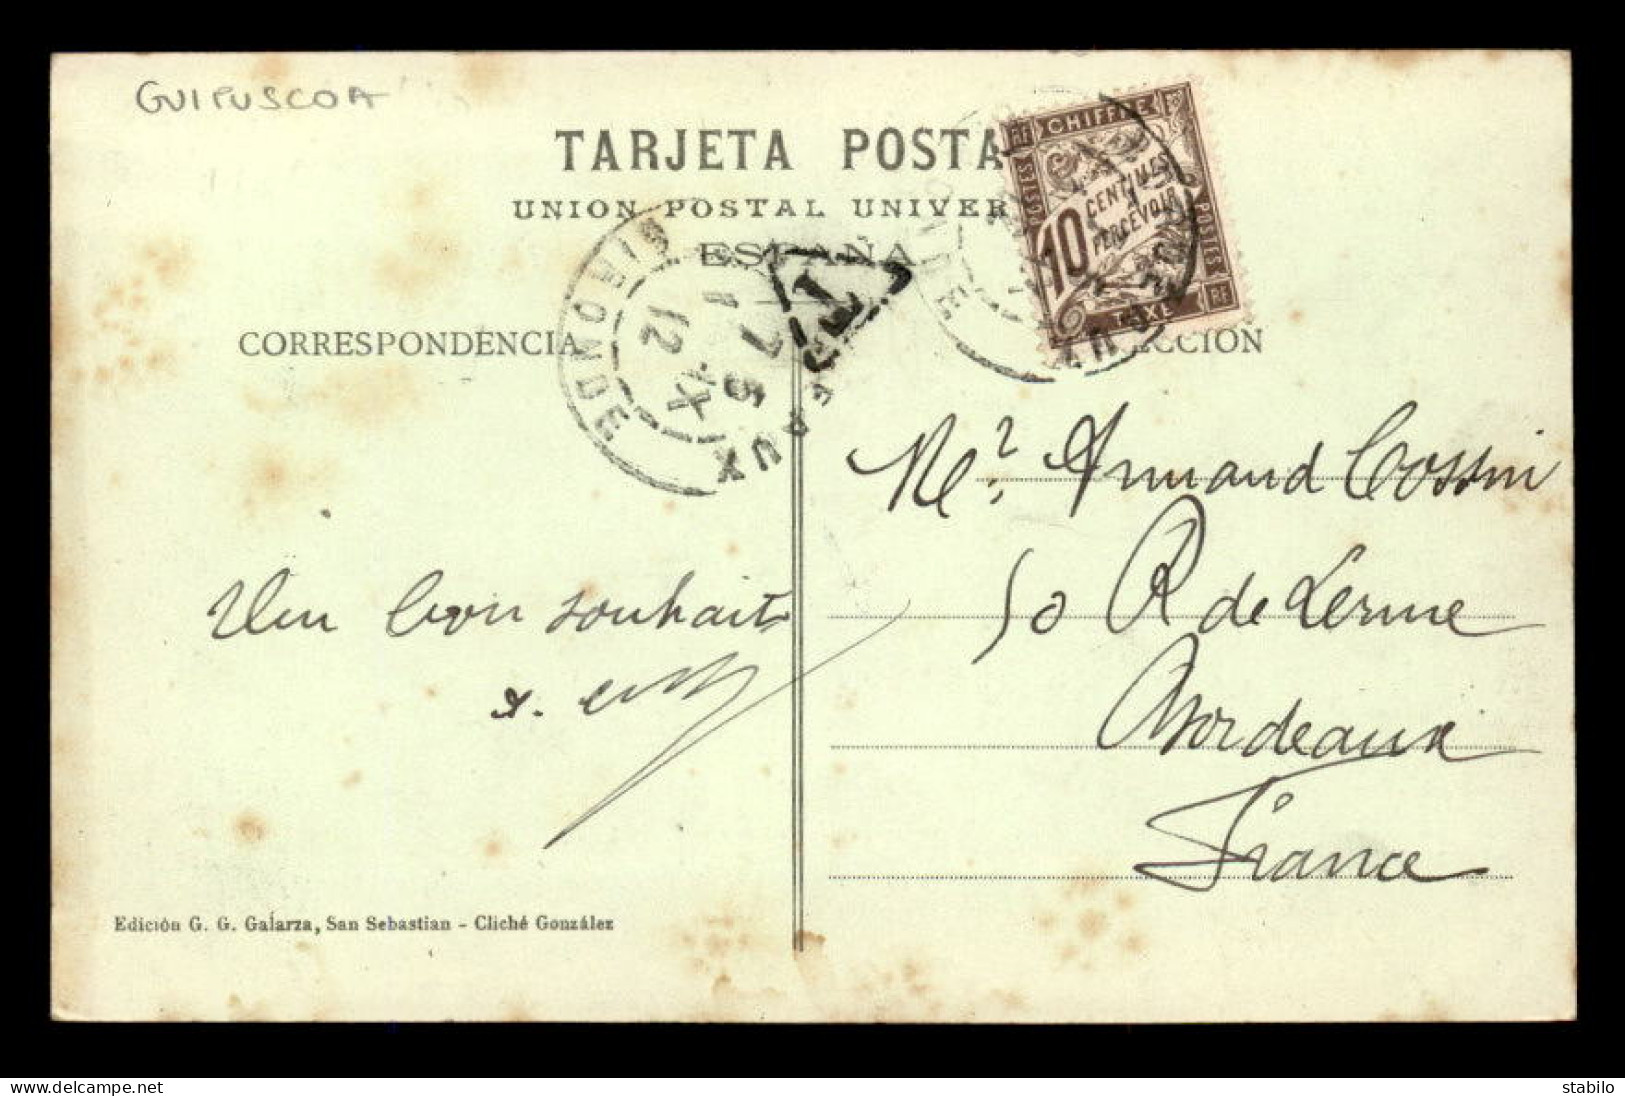 GUIPUSCOA
TARJETA POSTA
UNION POSTAL UNIVER
ESPAÑA
CORRESPONDENCIA
ECCION
RF CHIFFRE
POSTES
10 CENTIMES
PERCEVOIR
TAXE RF
T
BORDEAUX
GIRONDE
12
Mr. Armand Cossin
50 R de Lerme
Bordeaux
France
Un bon souhait
Edición G. G. Galarza, San Sebastian - Cliché González
delcampe.net
stabilo